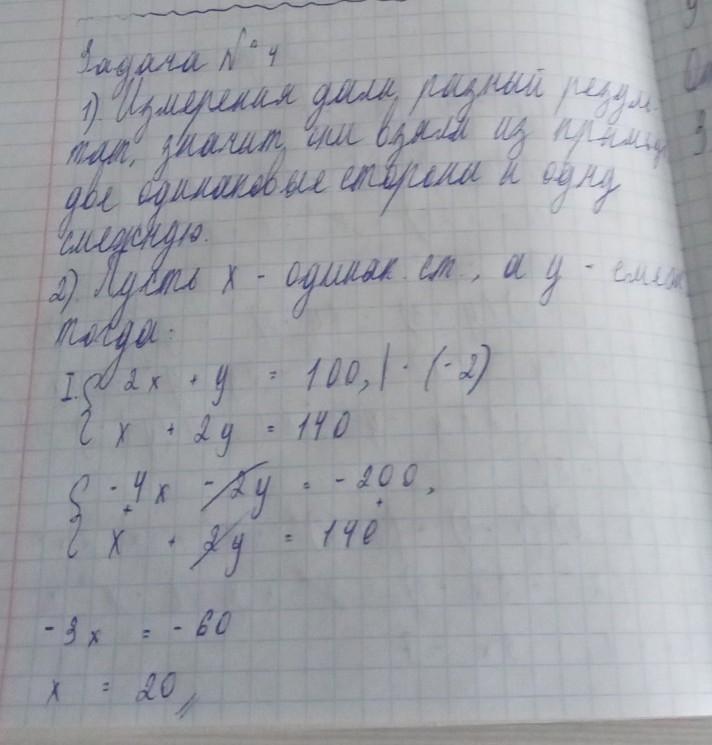 Задача № 4
1). Измерения дали разный резуль-
тат, значит они взяли из
две одинаковые стороны и одну
смежную.
2). Пусть x - одинак. ст., а y -
тогда:
I. { 2x + y = 100, | · (-2)
{ x + 2y = 140
{ -4x - 2y = -200,
{ x + 2y = 140
-3x = -60
x = 20